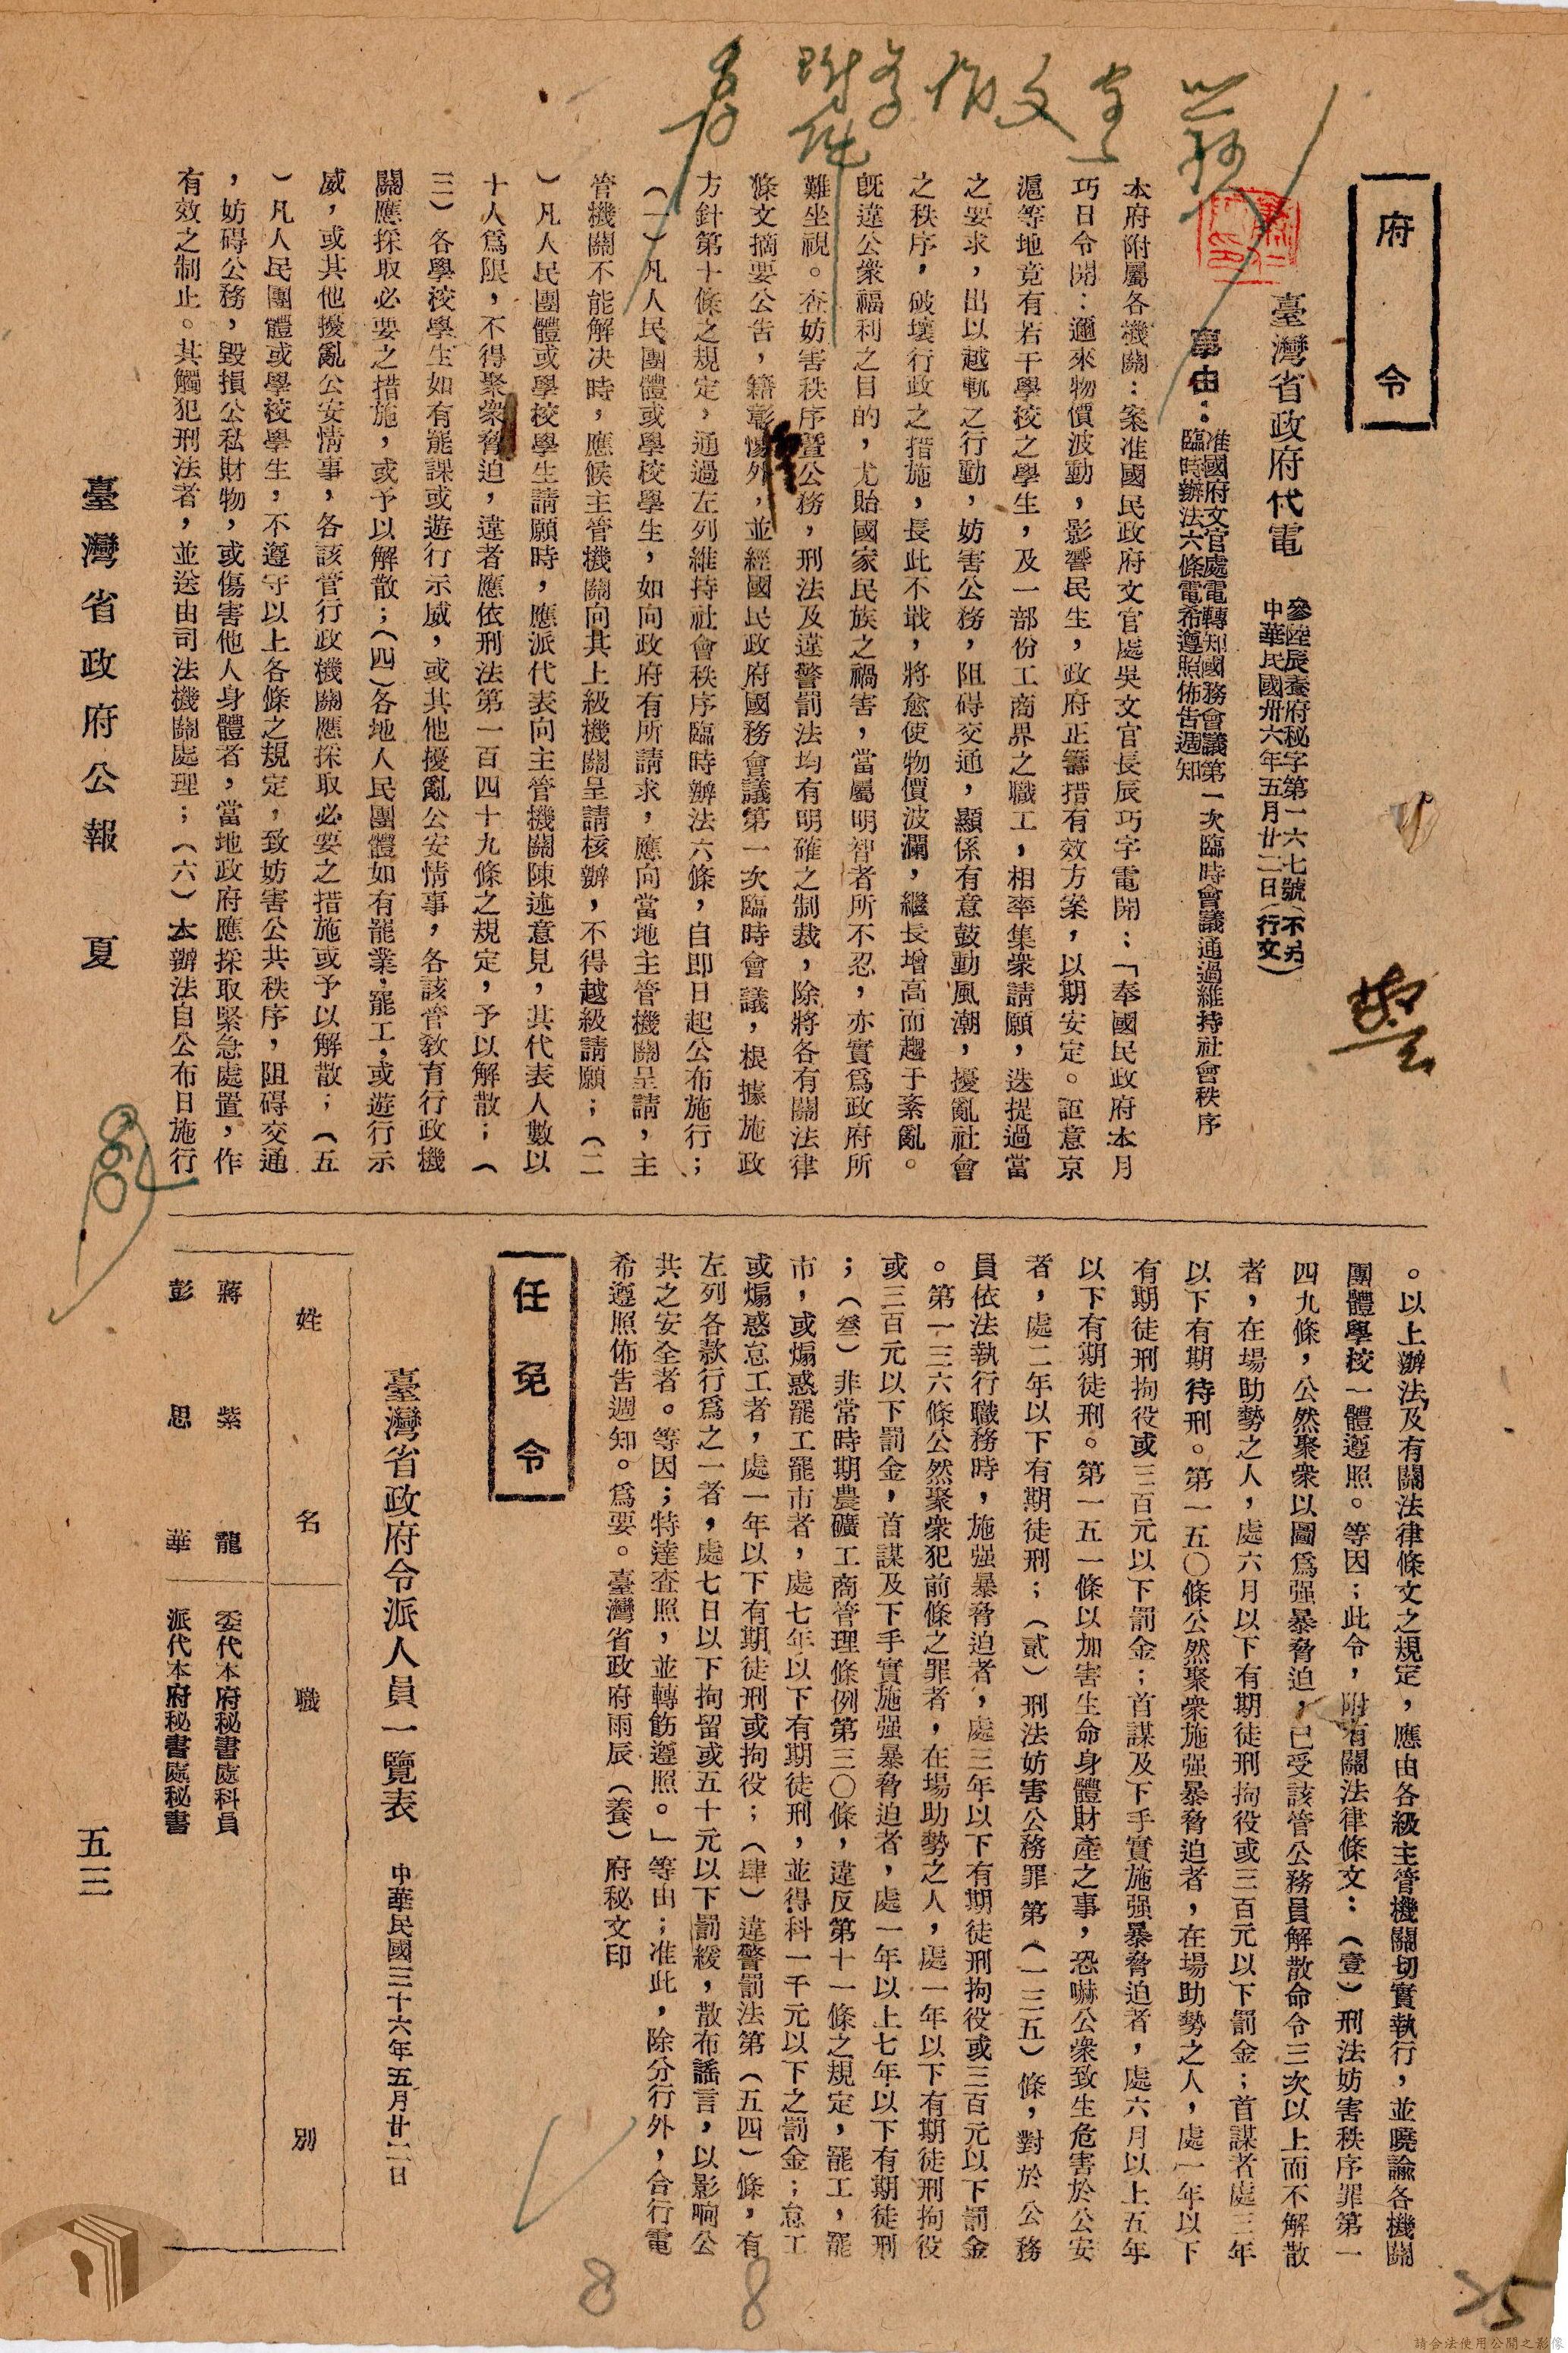 府令
臺灣省政府代電
參陸辰養府秘字第一六七號(不另
中華民國卅六年五月廿二日(行文)
事由:
准國府文官處電轉知國務會議第一次臨時會議通過維持社會秩序
臨時辦法六條電希遵照佈告週知
本府附屬各機關:案准國民政府文官處吳文官長辰巧字電開:「奉國民政府本月
巧日令開:邇來物價波動,影響民生,政府正籌措有效方案,以期安定。詎意京
滬等地竟有若干學校之學生,及一部份工商界之職工,相率集衆請願,迭提過當
之要求,出以越軌之行動,妨害公務,阻碍交通,顯係有意鼓動風潮,擾亂社會
之秩序,破壞行政之措施,長此不戢,將愈使物價波瀾,繼長增高而趨于紊亂。
旣違公衆福利之目的,尤貽國家民族之禍害,當屬明智者所不忍,亦實爲政府所
難坐視。查妨害秩序曁公務,刑法及違警罰法均有明確之制裁,除將各有關法律
條文摘要公告,籍彰惕外,並經國民政府國務會議第一次臨時會議,根據施政
方針第十條之規定,通過左列維持社會秩序臨時辦法六條,自即日起公布施行;
(一)凡人民團體或學校學生,如向政府有所請求,應向當地主管機關呈請,主
管機關不能解決時,應候主管機關向其上級機關呈請核辦,不得越級請願;(二
)凡人民團體或學校學生請願時,應派代表向主管機關陳述意見,其代表人數以
十人爲限,不得聚衆脅迫,違者應依刑法第一百四十九條之規定,予以解散;(
三)各學校學生如有罷課或遊行示威,或其他擾亂公安情事,各該管敎育行政機
關應採取必要之措施,或予以解散;(四)各地人民團體如有罷業,罷工,或遊行示
威,或其他擾亂公安情事,各該管行政機關應採取必要之措施或予以解散;(五
)凡人民團體或學校學生,不遵守以上各條之規定,致妨害公共秩序,阻碍交通
,妨碍公務,毀損公私財物,或傷害他人身體者,當地政府應採取緊急處置,作
有效之制止。其觸犯刑法者,並送由司法機關處理;(六)本辦法自公布日施行
。以上辦法及有關法律條文之規定,應由各級主管機關切實執行,並曉諭各機關
團體學校一體遵照。等因;此令,附有關法律條文:(壹)刑法妨害秩序罪第一
四九條,公然聚衆以圖爲强暴脅迫,已受該管公務員解散命令三次以上而不解散
者,在場助勢之人,處六月以下有期徒刑拘役或三百元以下罰金;首謀者處三年
以下有期待刑。第一五〇條公然聚衆施强暴脅迫者,在場助勢之人,處一年以下
有期徒刑拘役或三百元以下罰金;首謀及下手實施强暴脅迫者,處六月以上五年
以下有期徒刑。第一五一條以加害生命身體財產之事,恐嚇公衆致生危害於公安
者,處二年以下有期徒刑;(貳)刑法妨害公務罪第(一三五)條,對於公務
員依法執行職務時,施强暴脅迫者,處三年以下有期徒刑拘役或三百元以下罰金
。第一三六條公然聚衆犯前條之罪者,在場助勢之人,處一年以下有期徒刑拘役
或三百元以下罰金,首謀及下手實施强暴脅迫者,處一年以上七年以下有期徒刑
;(叄)非常時期農礦工商管理條例第三〇條,違反第十一條之規定,罷工,罷
市,或煽惑罷工罷市者,處七年以下有期徒刑,並得科一千元以下之罰金;怠工
或煽惑怠工者,處一年以下有期徒刑或拘役;(肆)違警罰法第(五四)條,有
左列各款行爲之一者,處七日以下拘留或五十元以下罰緩,散布謠言,以影响公
共之安全者。等因;特達查照,並轉飭遵照。」等由;准此,除分行外,合行電
希遵照佈告週知。爲要。臺灣省政府雨辰(養)府秘文印
任免令
臺灣省政府令派人員一覽表 中華民國三十六年五月廿二日
姓名 職別
蔣紫龍 委代本府秘書處科員
彭思華 派代本府秘書處秘書
臺灣省政府公報 夏 五三
8
8
25
請合法使用公開之影像